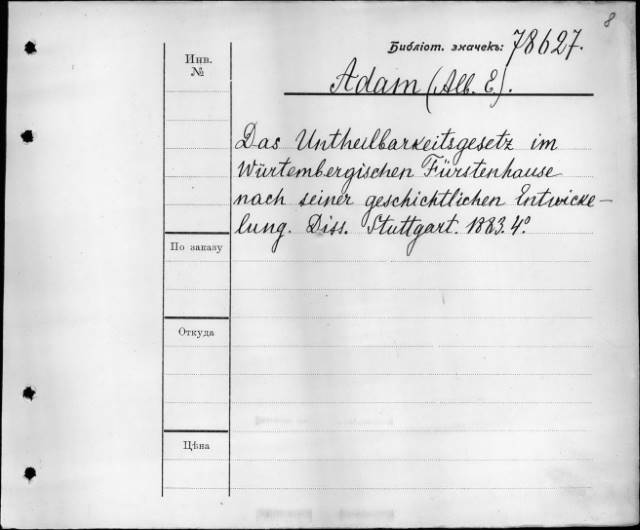 8
Библіот. значекъ: 78627.
Инв.
№
Adam (Alb. E).
Das Untheilbarkeitsgesetz im
Würtembergischen Fürstenhause
nach seiner geschichtlichen Entwicke-
lung. Diss. Stuttgart. 1883. 4º
По заказу
Откуда
Цѣна